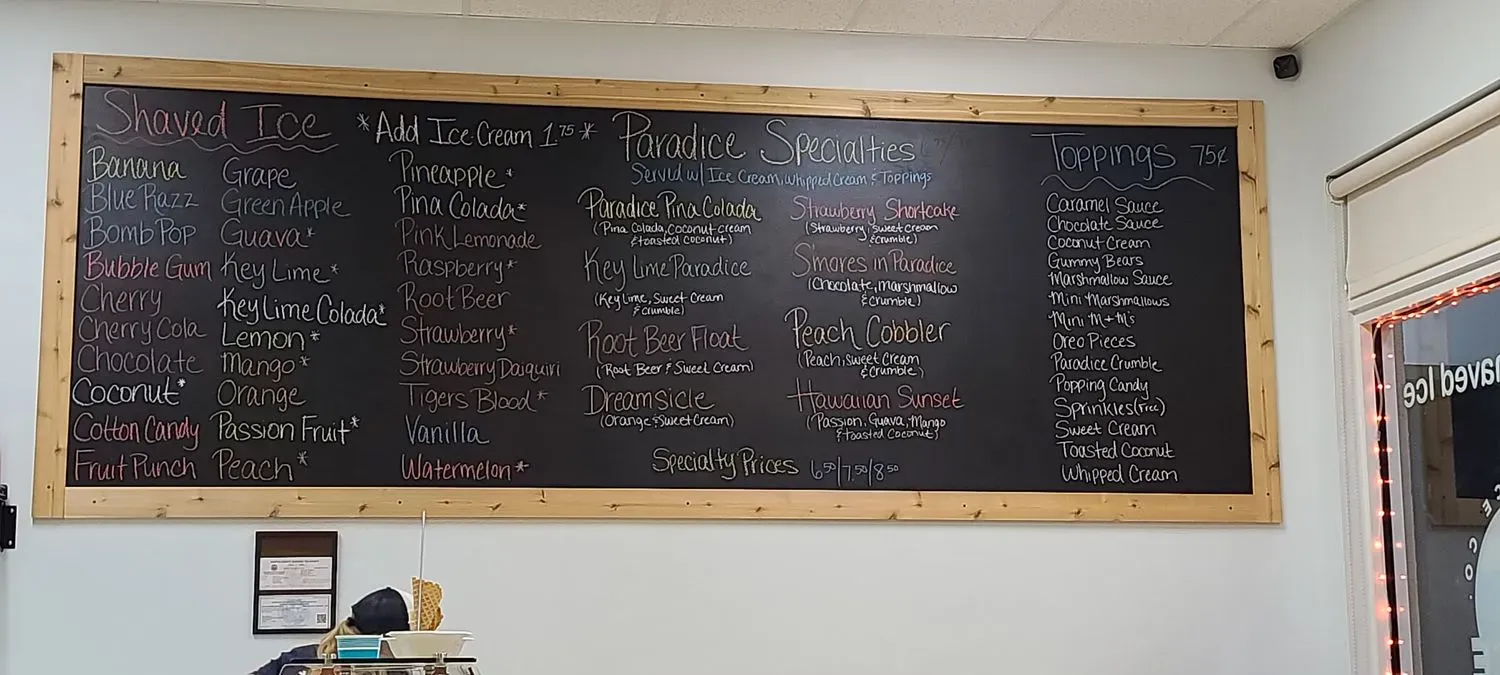 Shaved Ice
*Add Ice Cream 1.75*
Banana
Blue Razz
Bomb Pop
Bubble Gum
Cherry
Cherry Cola
Chocolate
Coconut*
Cotton Candy
Fruit Punch
Grape
Green Apple
Guava*
Key Lime*
Key Lime Colada*
Lemon*
Mango*
Orange
Passion Fruit*
Peach*
Pineapple*
Pina Colada*
Pink Lemonade
Raspberry*
Root Beer
Strawberry*
Strawberry Daiquiri
Tigers Blood*
Vanilla
Watermelon*
Paradice Specialties
Served w/ Ice Cream, Whipped Cream & Toppings
Paradice Pina Colada
(Pina Colada, Coconut Cream
& toasted coconut)
Key Lime Paradice
(Key Lime, Sweet Cream
& crumble)
Root Beer Float
(Root Beer & Sweet Cream)
Dreamsicle
(Orange & Sweet Cream)
Strawberry Shortcake
(Strawberry, Sweet Cream
& crumble)
S'mores in Paradice
(Chocolate, Marshmallow
& crumble)
Peach Cobbler
(Peach, Sweet Cream
& crumble)
Hawaiian Sunset
(Passion, Guava, Mango
& toasted Coconut)
Specialty Prices 6.50/7.50/8.50
Toppings 75¢
Caramel Sauce
Chocolate Sauce
Coconut Cream
Gummy Bears
Marshmallow Sauce
Mini Marshmallows
Mini M+M's
Oreo Pieces
Paradice Crumble
Popping Candy
Sprinkles (Free)
Sweet Cream
Toasted Coconut
Whipped Cream
haved Ice